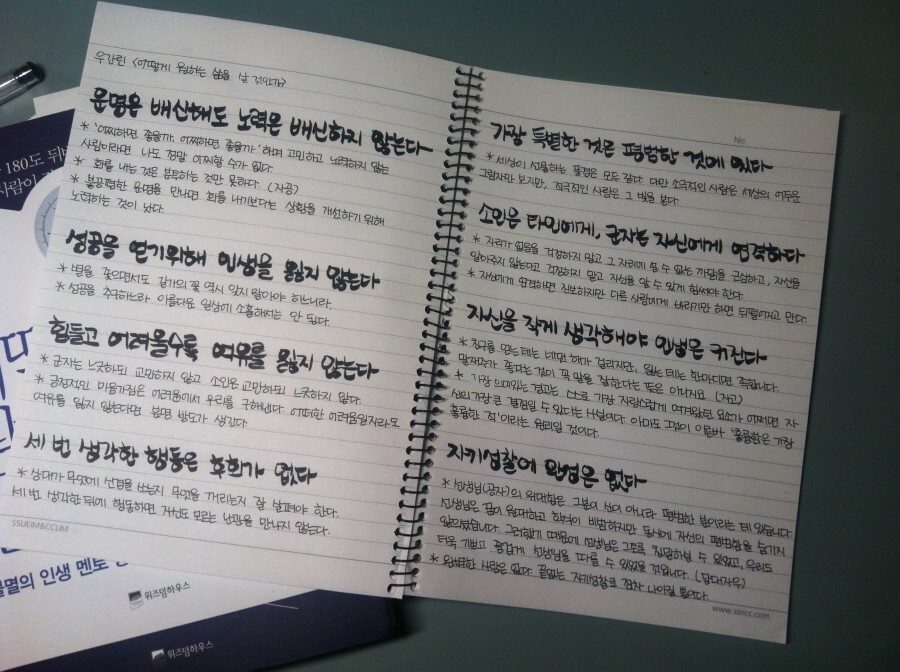 우간린 <어떻게 원하는 삶을 살 것인가>
운명은 배신해도 노력은 배신하지 않는다
* '어찌하면 좋을까, 어찌하면 좋을까' 하며 고민하고 노력하지 않는
사람이라면 나도 정말 어찌할 수가 없다.
* 화를 내는 것은 분투하는 것만 못하다. (자공)
* 불공평한 운명을 만나면 화를 내기보다는 상황을 개선하기 위해
노력하는 것이 낫다.
성공을 얻기위해 인생을 잃지 않는다
* 별을 좇으면서도 길가의 꽃 역시 잊지 말아야 하느니라.
* 성공을 추구하느라 아름다운 일상에 소홀해서는 안 된다.
힘들고 어려울수록 여유를 잃지 않는다
* 군자는 느긋하되 교만하지 않고 소인은 교만하되 느긋하지 않다.
* 긍정적인 마음가짐은 어려움에서 우리를 구해낸다. 어떠한 어려움일지라도
여유를 잃지 않는다면 분명 방도가 생긴다.
세 번 생각한 행동은 후회가 없다
* 상대가 무엇에 신경을 쓰는지 무엇을 꺼리는지 잘 살펴야 한다.
세 번 생각한 뒤에 행동하면 자신도 모르는 난관을 만나지 않는다.
SSUEIM&CCUM
No.
가장 특별한 것은 평범한 것에 있다
* 세상이 선물하는 풍경은 모두 같다. 다만 소극적인 사람은 세상의 어두운
그림자만 보지만, 적극적인 사람은 그 빛을 본다
소인은 타인에게, 군자는 자신에게 엄격하다
* 자리가 없음을 걱정하지 말고 그 자리에 설 수 없는 까닭을 근심하고, 자신을
알아주지 않는다고 걱정하지 말고 자신을 알 수 있게 힘써야 한다.
* 자신에게 엄격하면 진보하지만 다른 사람에게 바라기만 하면 뒤떨어지고 만다.
자신을 작게 생각해야 인생은 커진다
* 친구를 얻는 데는 네댓 해가 걸리지만, 잃는 데는 한마디면 족합니다.
말재주가 좋다는 것이 꼭 말을 잘한다는 뜻은 아니지요. (자공)
* 가장 의미있는 경고는 스스로 가장 자랑스럽게 여겨왔던 요소가 어쩌면 자
신의 가장 큰 결점일 수 있다는 사실이다. 아마도 그것이 이른바 '훌륭함은 가장
훌륭한 적'이라는 원리일 것이다.
자기성찰에 완성은 없다
* 선생님(공자)의 위대함은 그분이 신이 아니라 평범한 분이라는 데 있습니다.
선생님은 덕이 위대하고 학식이 비범하지만 동시에 자신의 평범함을 숨기지
않으셨습니다. 그러했기 때문에 선생님은 그토록 위대하실 수 있었고, 우리도
더욱 기쁘고 즐겁게 선생님을 따를 수 있었을 것입니다. (담대자우)
* 완벽한 사람은 없다. 끝없는 자기성찰로 점차 나아질 뿐이다.
www.ssncc.com
180도 뒤바
사람이
불멸의 인생 멘토
위즈덤하우스
위즈덤하우스